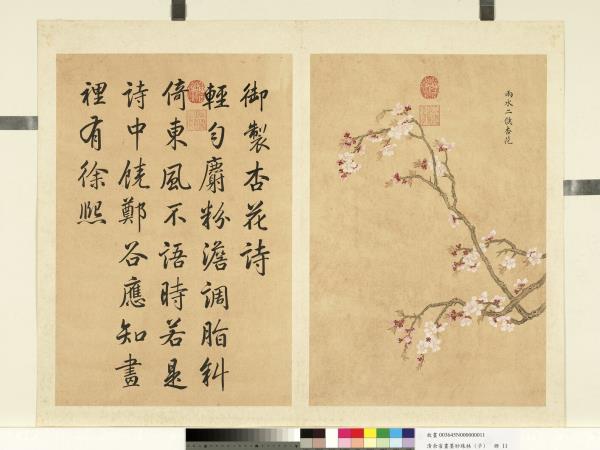 御製杏花詩
輕勻麝粉澹調脂斜
倚東風不語時若是
詩中饒鄭谷應知畫
裡有徐熙
雨水二候杏花
故畫 003645N000000011
清余省畫墨妙珠林（子） 冊 11